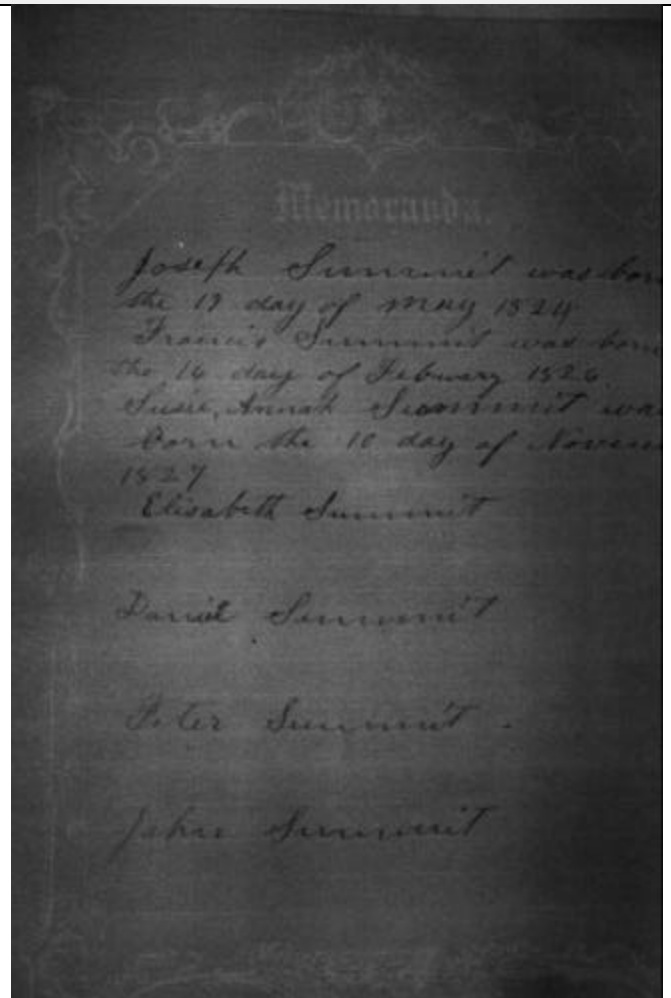 Memoranda.
Joseph Summit was born
the 19 day of May 1824
Francis Summit was born
the 16 day of Febuary 1826
Susie, Annah Summit was
born the 10 day of Novem
1827
Elisabeth Summit
Daniel Summit
Peter Summit .
John Summit